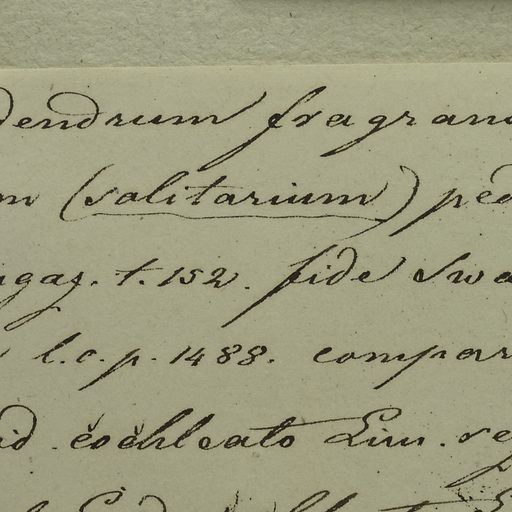 dendrum fragran
m (solitarium) ped
agaz. t. 152. fide Swa
l.c.p. 1488. compar
id. cochleato Lin. reg